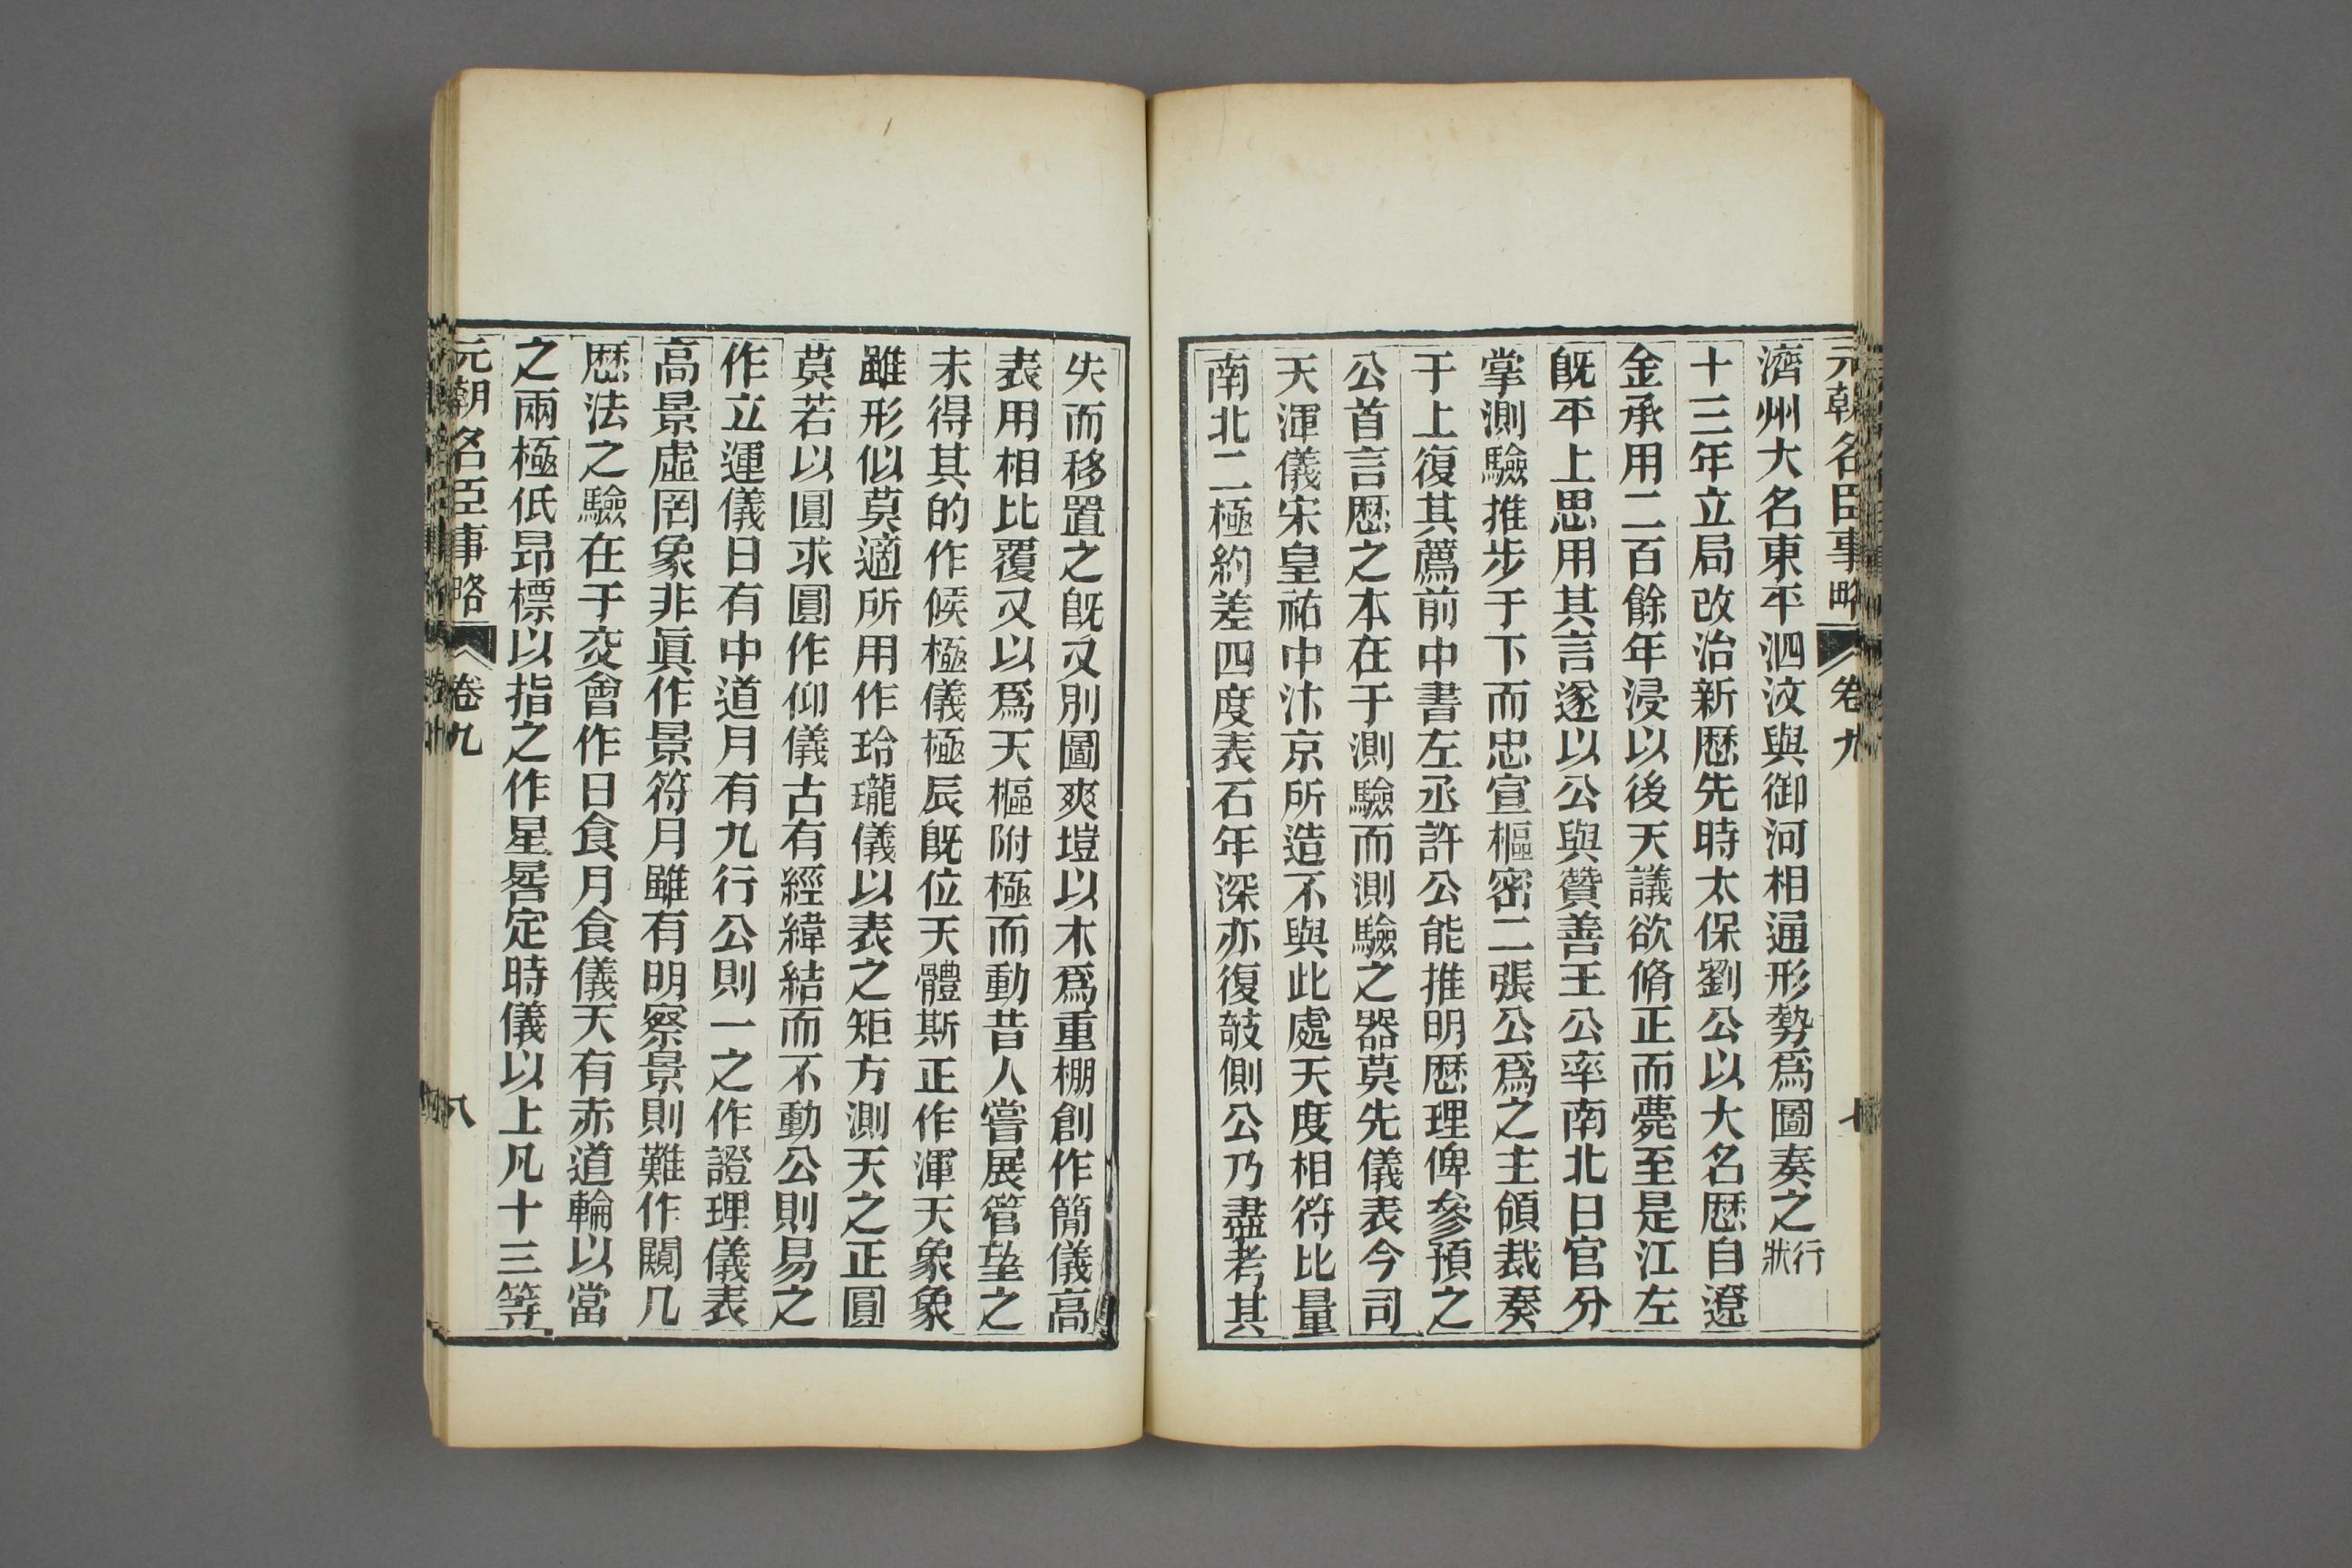 元朝名臣事略 卷九 七
濟州大名東平泗汶與御河相通形勢爲圖奏之行狀
十三年立局改治新歷先時太保劉公以大名歷自遼
金承用二百餘年浸以後天議欲脩正而薨至是江左
旣平上思用其言遂以公與贊善王公率南北日官分
掌測驗推步于下而忠宣樞密二張公爲之主領裁奏
于上復其薦前中書左丞許公能推明歷理俾參預之
公首言歷之本在于測驗而測驗之器莫先儀表今司
天渾儀宋皇祐中汴京所造不與此處天度相符比量
南北二極約差四度表石年深亦復攲側公乃盡考其
失而移置之旣又別圖爽塏以木爲重棚創作簡儀高
表用相比覆又以爲天樞附極而動昔人嘗展管望之
未得其的作候極儀極辰旣位天體斯正作渾天象象
雖形似莫適所用作玲瓏儀以表之矩方測天之正圓
莫若以圓求圓作仰儀古有經緯結而不動公則易之
作立運儀日有中道月有九行公則一之作證理儀表
高景虛罔象非眞作景符月雖有明察景則難作闚几
歷法之驗在于交會作日食月食儀天有赤道輪以當
之兩極低昂標以指之作星晷定時儀以上凡十三等
元朝名臣事略 卷九 八